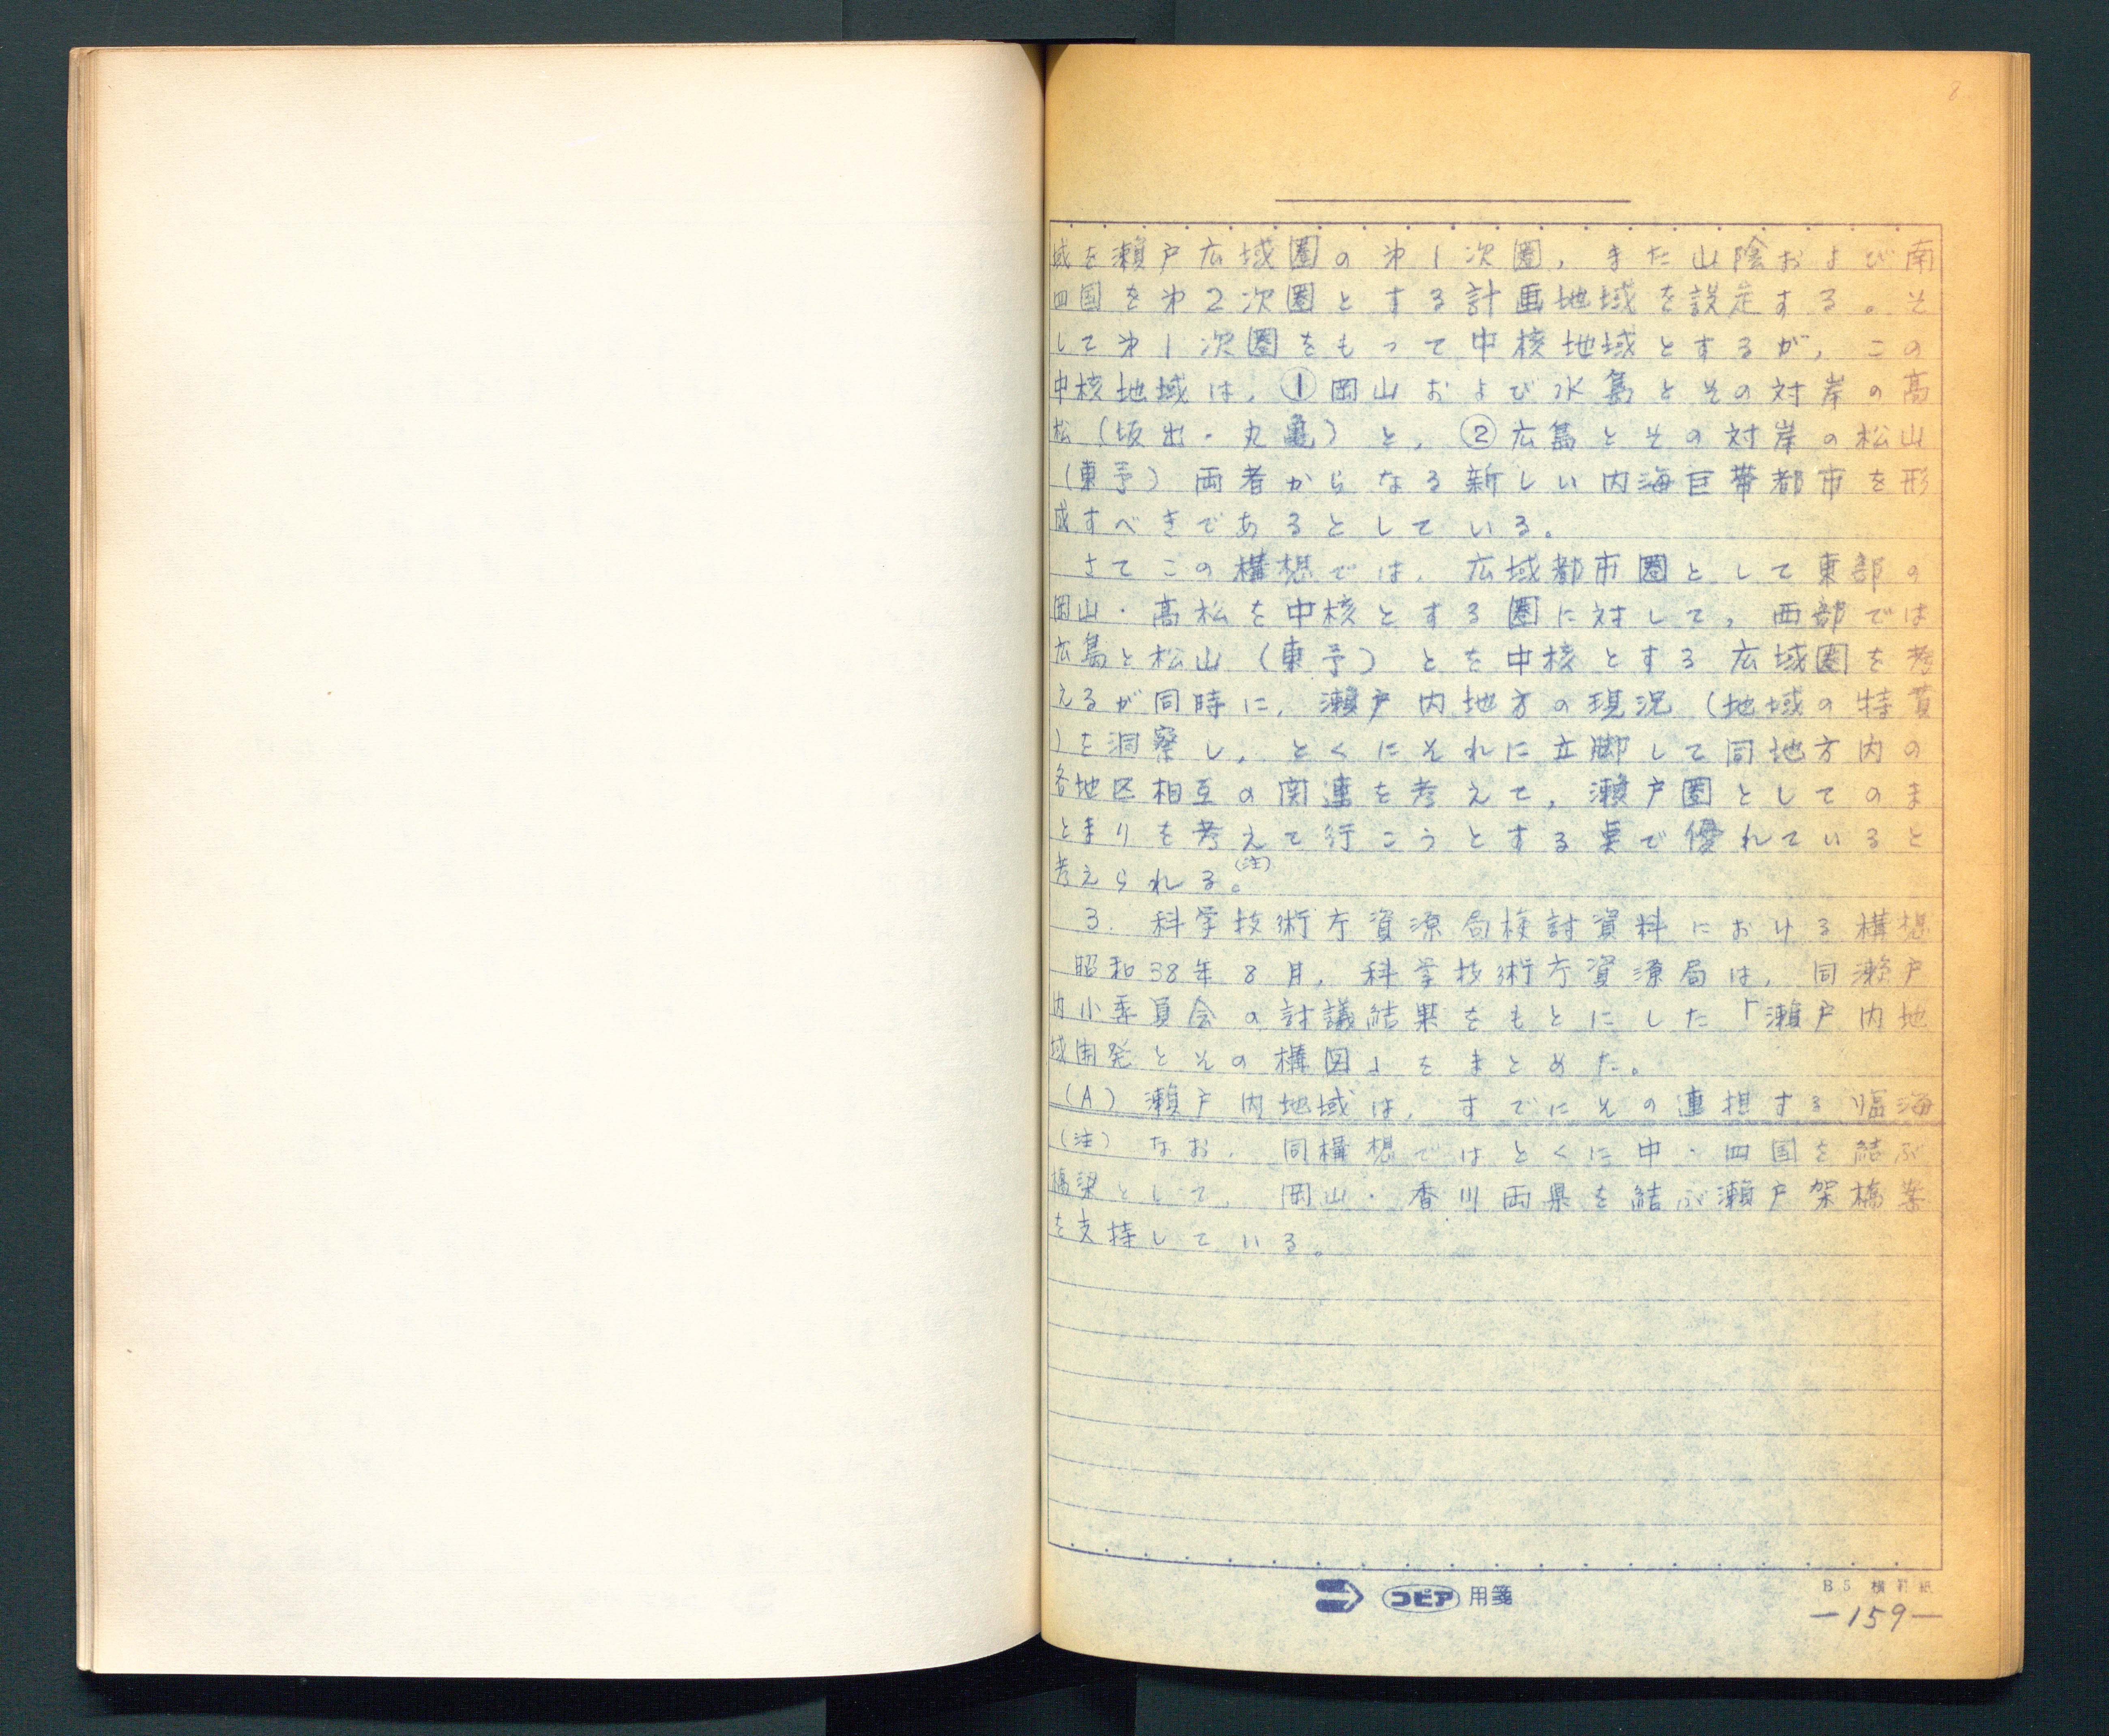 域を瀬戸広域圏の㐧1次圏，また山陰および南
四国を㐧2次圏とする計画地域を設定する。そ
して㐧1次圏をもって中核地域とするが，この
中核地域は，①岡山および水島とその対岸の高
松（坂出・丸亀）と，②広島とその対岸の松山
（東予）両者からなる新しい内海巨帯都市を形
成すべきであるとしている。
さてこの構想では，広域都市圏として東部の
岡山・高松を中核とする圏に対して，西部では
広島と松山（東予）とを中核とする広域圏を考
えるが同時に，瀬戸内地方の現況（地域の特質
）を洞察し，とくにそれに立脚して同地方内の
各地区相互の関連を考えて，瀬戸圏としてのま
とまりを考えて行こうとする点で優れていると
考えられる。(注)
3．科学技術庁資源局検討資料における構想
昭和38年8月，科学技術庁資源局は，同瀬戸
内小委員会の討議結果をもとにした「瀬戸内地
域開発とその構図」をまとめた。
（A）瀬戸内地域は，すでにその連担する臨海
（注）なお，同構想ではとくに中・四国を結ぶ
橋梁として，岡山・香川両県を結ぶ瀬戸架橋案
を支持している。
コピア用箋
B5 横罫紙
—159—